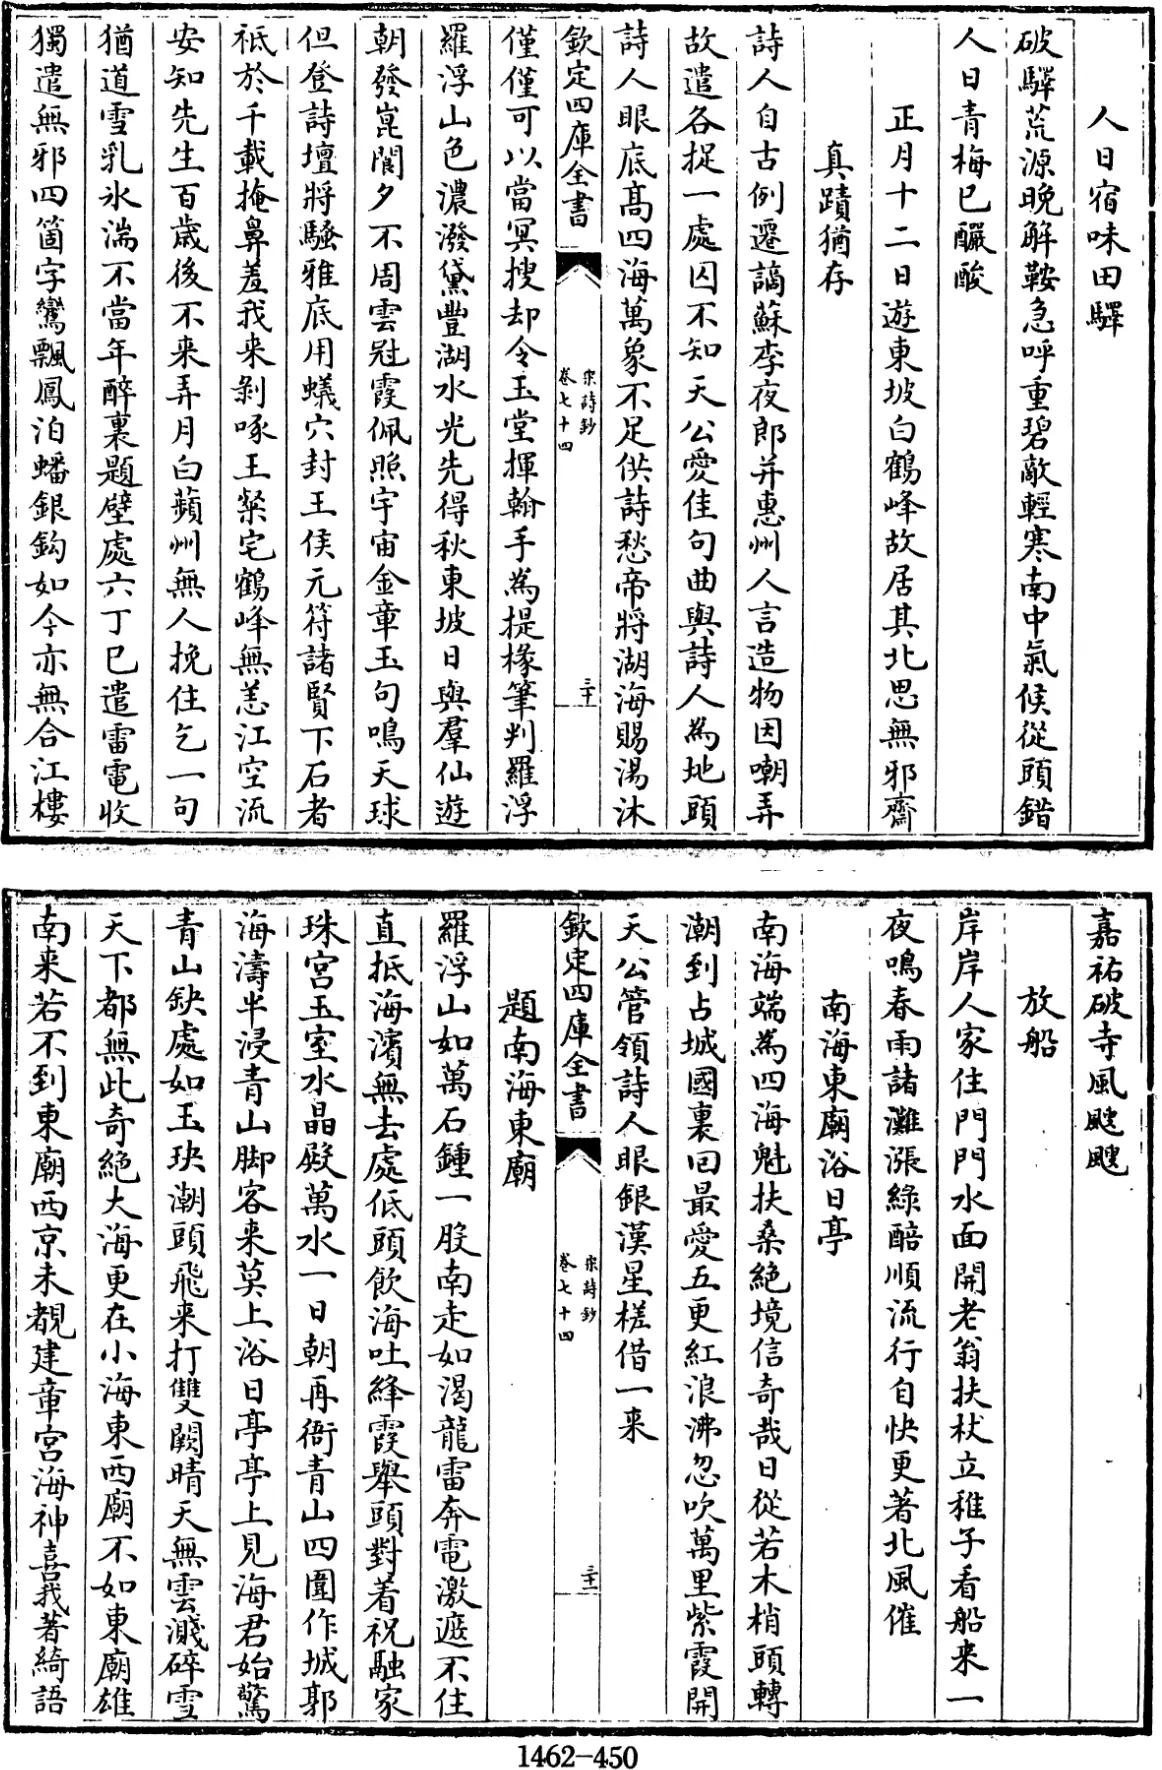 人日宿味田驛
破驛荒源晩解鞍急呼重碧敵輕寒南中氣候從頭錯
人日青梅已釅酸
正月十二日遊東坡白鶴峰故居其北思無邪齋
真蹟猶存
詩人自古例遷謫蘇李夜郎并惠州人言造物因嘲弄
故遣各捉一處囚不知天公愛佳句曲與詩人為地頭
詩人眼底髙四海萬象不足供詩愁帝將湖海賜湯沐
欽定四庫全書
宋詩鈔
卷七十四
三十
僅僅可以當冥搜却令玉堂揮翰手為提椽筆判羅浮
羅浮山色濃潑黛豐湖水光先得秋東坡日與羣仙遊
朝發崑閬夕不周雲冠霞佩照宇宙金章玉句鳴天球
但登詩壇將騷雅底用蟻穴封王侯元符諸賢下石者
祗於千載掩鼻羞我来剝啄王粲宅鶴峰無恙江空流
安知先生百歲後不来弄月白蘋州無人挽住乞一句
猶道雪乳氷湍不當年醉裏題壁處六丁已遣雷電收
獨遣無邪四箇字鸞飄鳳泊蟠銀鈎如今亦無合江樓
嘉祐破寺風颼颼
放船
岸岸人家住門門水面開老翁扶杖立稚子看船来一
夜鳴春雨諸灘漲綠醅順流行自快更著北風催
南海東廟浴日亭
南海端為四海魁扶桑絶境信奇哉日從若木梢頭轉
潮到占城國裏回最愛五更紅浪沸忽吹萬里紫霞開
天公管領詩人眼銀漢星槎借一来
欽定四庫全書
宋詩鈔
卷七十四
三十一
題南海東廟
羅浮山如萬石鍾一股南走如渴龍雷奔電激遮不住
直抵海濱無去處低頭飲海吐絳霞舉頭對着祝融家
珠宮玉室水晶殿萬水一日朝再衙青山四圍作城郭
海濤半浸青山脚客来莫上浴日亭亭上見海君始驚
青山缺處如玉玦潮頭飛来打雙闕晴天無雲濺碎雪
天下都無此奇絶大海更在小海東西廟不如東廟雄
南来若不到東廟西京未覩建章宮海神喜我著綺語
1462-450